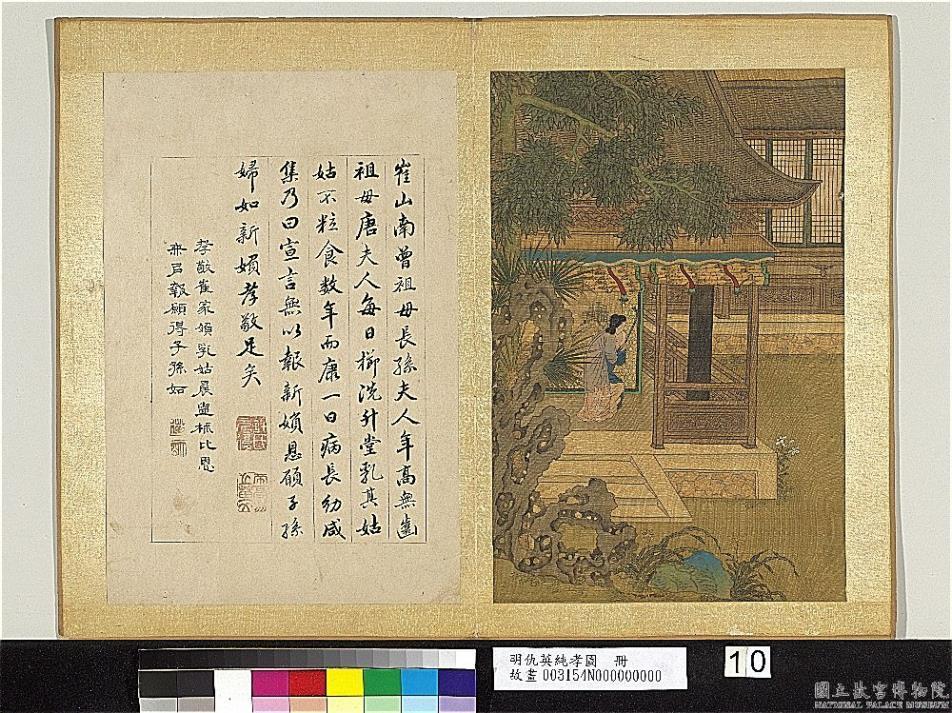 崔山南曾祖母長孫夫人年高無齒
祖母唐夫人每日櫛洗升堂乳其姑
姑不粒食數年而康一日病長幼咸
集乃曰宣言無以報新婦恩願子孫
婦如新婦孝敬足矣
孝敬崔家婦乳姑晨盥梳此恩
無以報願得子孫如
明仇英純孝圖 冊
故畫 003154N000000000
10
國立故宮博物院
NATIONAL PALACE MUSEUM